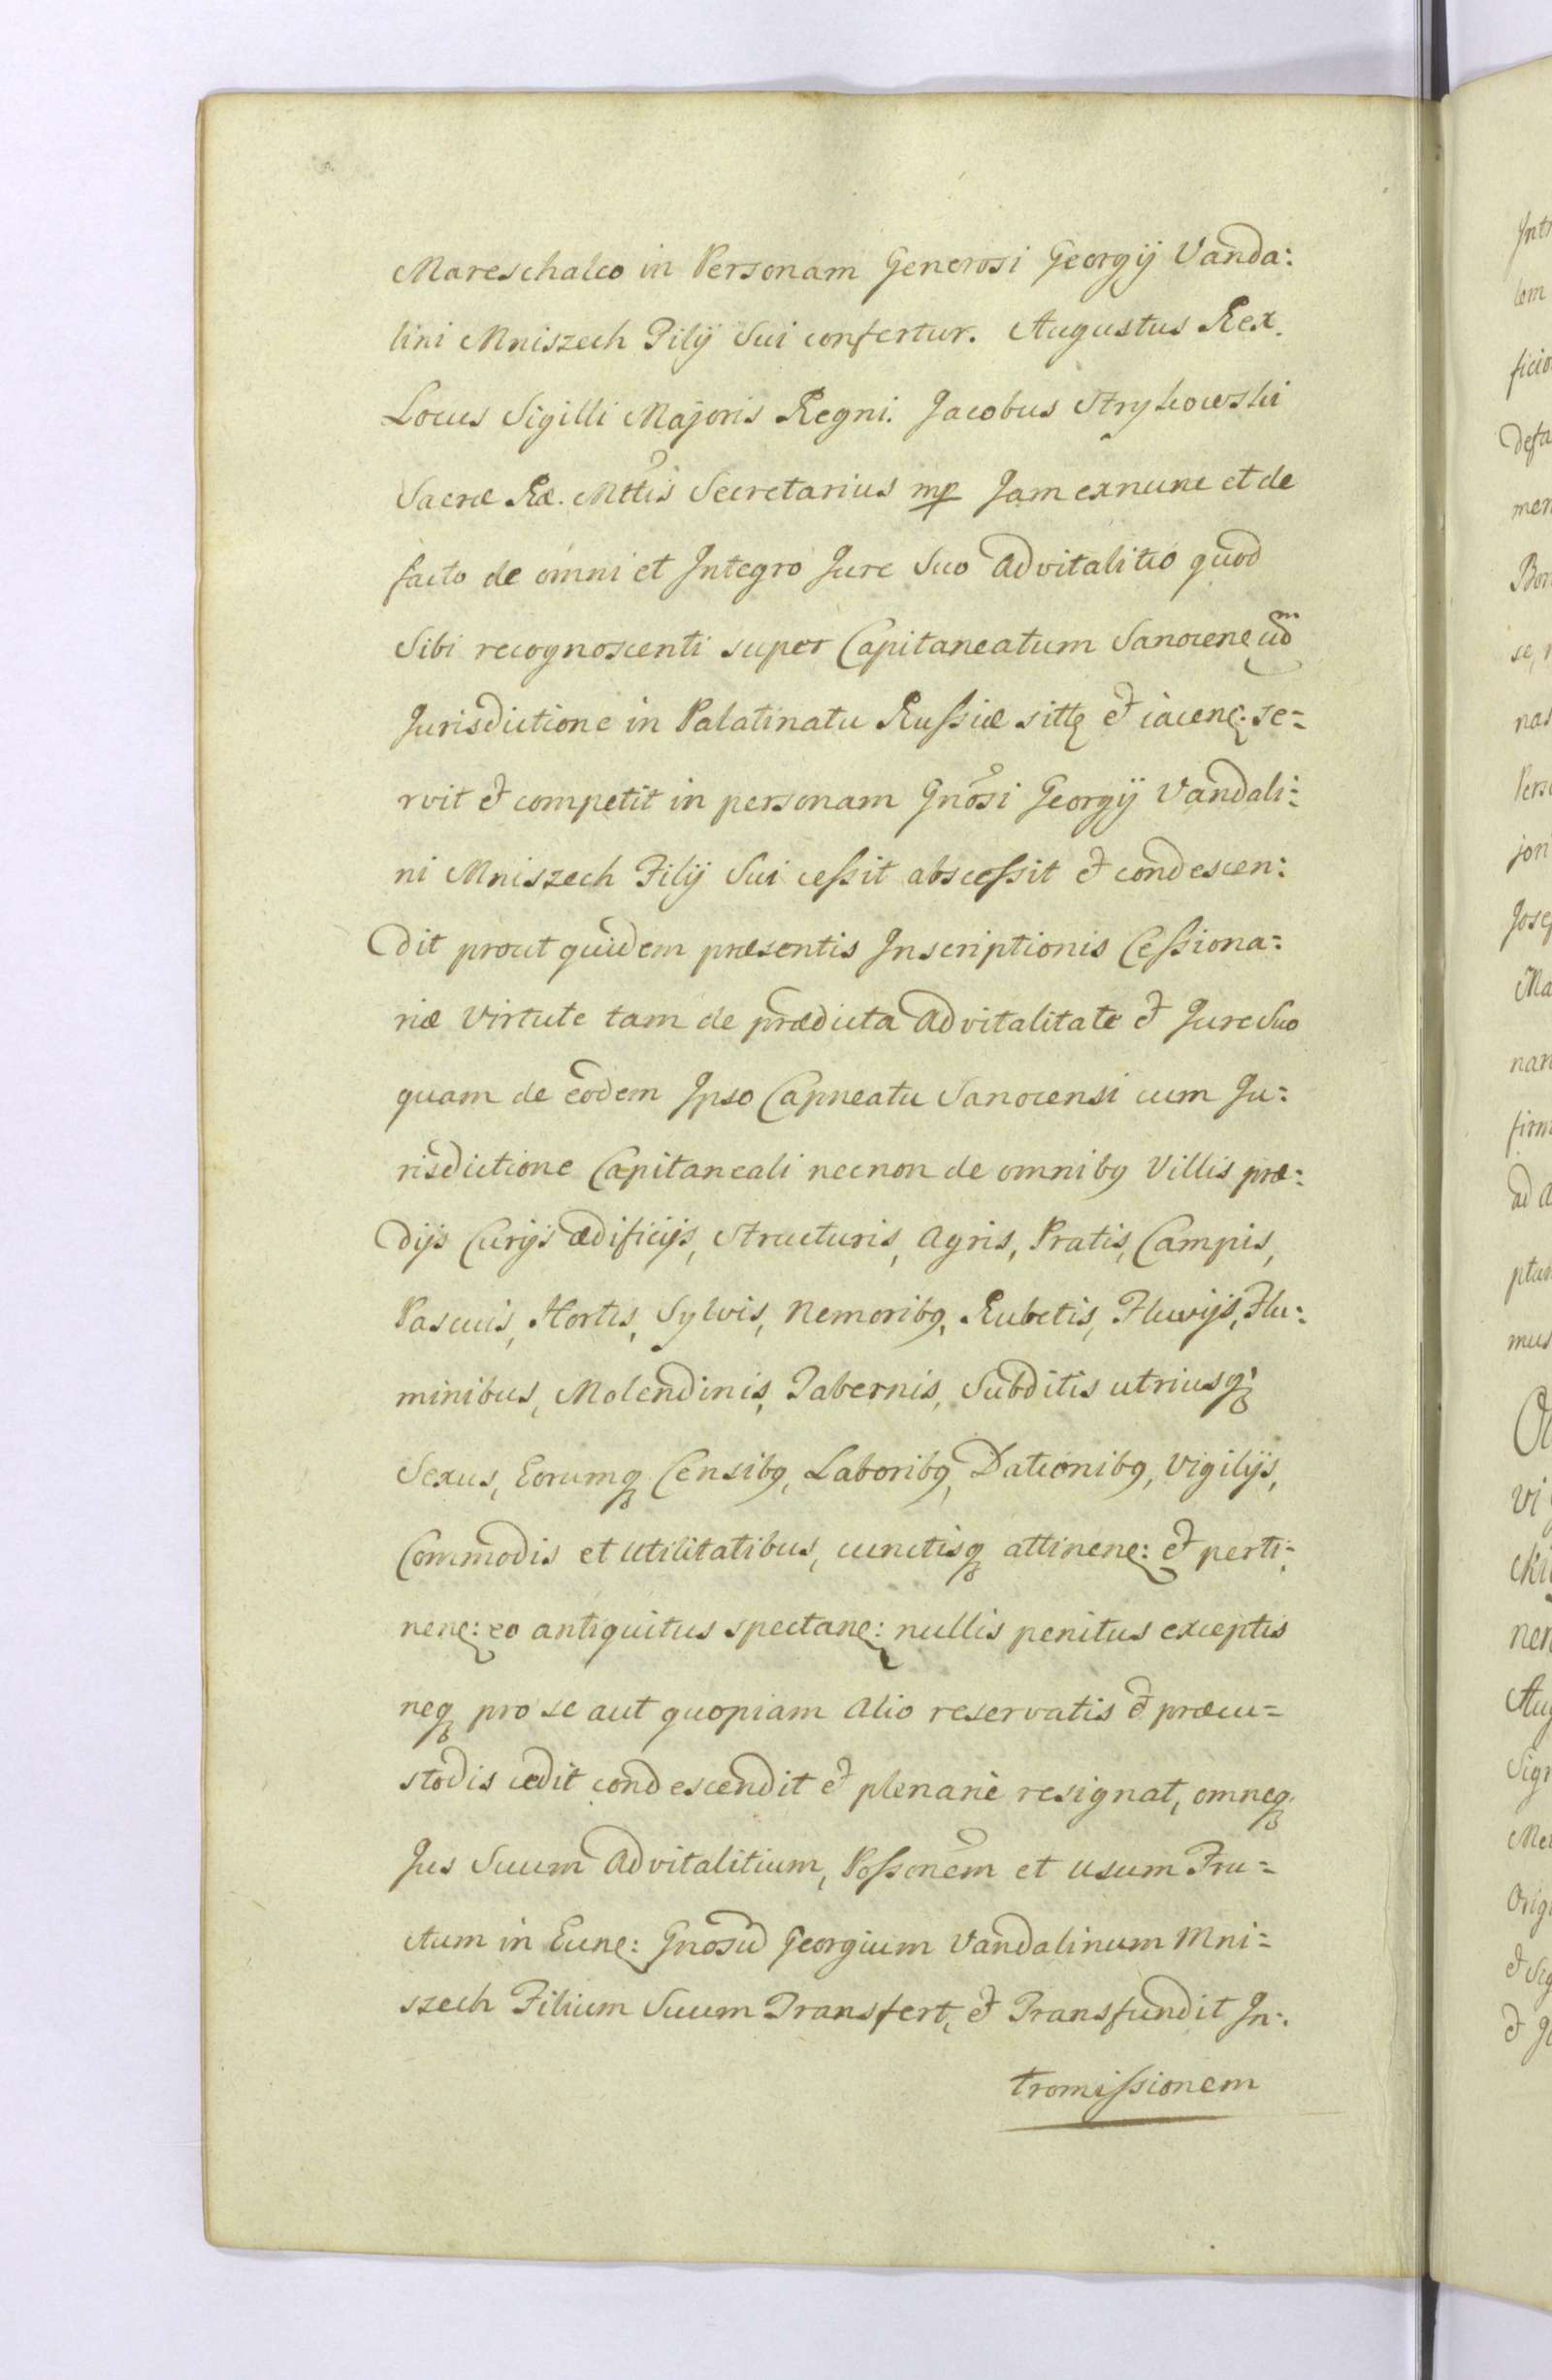 Mareschalco in Personam Generosi Georgij Vanda:
lini Mniszech Filij Sui confertur. Augustus Rex.
Locus Sigilli Majoris Regni. Jacobus Strykowski
Sacræ Ræ. Mttis Secretarius mp Jam exnunc et de
facto de omni et Integro Jure Suo Advitalitio quod
Sibi recognoscenti super Capitaneatum Sanocen: cum
Jurisdictione in Palatinatu Russiæ sitt: et iacen: se=
rvit et competit in personam Gnosi Georgij Vandali:
ni Mniszech Filij Sui cessit abscessit et condescen:
dit prout quidem præsentis Inscriptionis Cessiona:
riæ Virtute tam de prædicta Advitalitate et Jure Suo
quam de eodem Ipso Capneatu Sanocensi cum Ju:
risdictione Capitaneali necnon de omnibq Villis præ:
dijs Curijs ædificijs, Structuris, Agris, Pratis, Campis,
Pascuis, Hortis, Sylvis, Nemoribq, Rubetis, Fluvijs, Flu:
minibus, Molendinis, Tabernis, Subditis utriusq
Sexus, Eorumq Censibq, Laboribq, Dationibq, Vigilijs,
Commodis et Utilitatibus, cunctisq attinen: et perti:
nen: eo antiquitus spectan: nullis penitus exceptis
neq pro se aut quopiam Alio reservatis et præcu=
stodis cedit condescendit et plenariè resignat, omneq
Jus Suum Advitalitium, Possonem et Usum Fru=
ctum in Eun: Gnosum Georgium Vandalinum Mni=
szech Filium Suum Transfert, et Transfundit In:
tromissionem